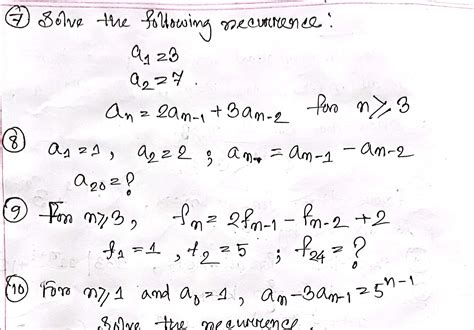 ⑦ Solve the following recurrence:
a₁ = 3
a₂ = 7.
aₙ = 2aₙ₋₁ + 3aₙ₋₂ for n ≥ 3
⑧ a₁ = 1, a₂ = 2 ; aₙ = aₙ₋₁ - aₙ₋₂
a₂₀ = ?
⑨ For n ≥ 3, fₙ = 2fₙ₋₁ - fₙ₋₂ + 2
f₁ = 1, f₂ = 5 ; f₂₄ = ?
⑩ For n ≥ 1 and a₀ = 1, aₙ - 3aₙ₋₁ = 5ⁿ⁻¹
Solve the recurrence.